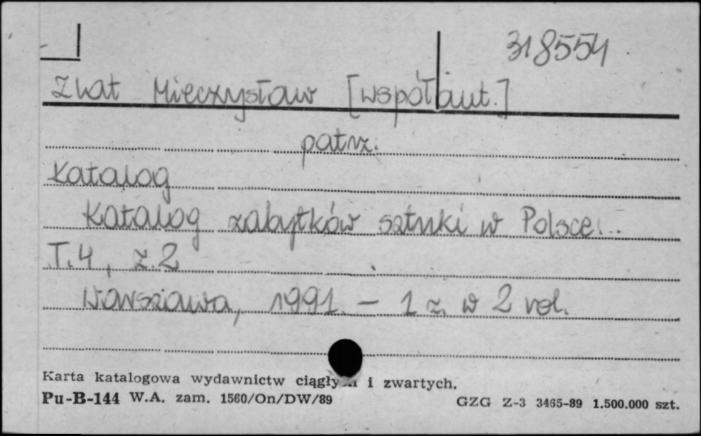 318554
Zlat Mieczysław [współaut.]
patrz:
Katalog
Katalog zabytków sztuki w Polsce...
T.4, z.2
Warszawa, 1991. - 1 z. w 2 vol.
Karta katalogowa wydawnictw ciągłych i zwartych.
Pu-B-144 W.A. zam. 1560/On/DW/89 GZG Z-3 3465-89 1.500.000 szt.